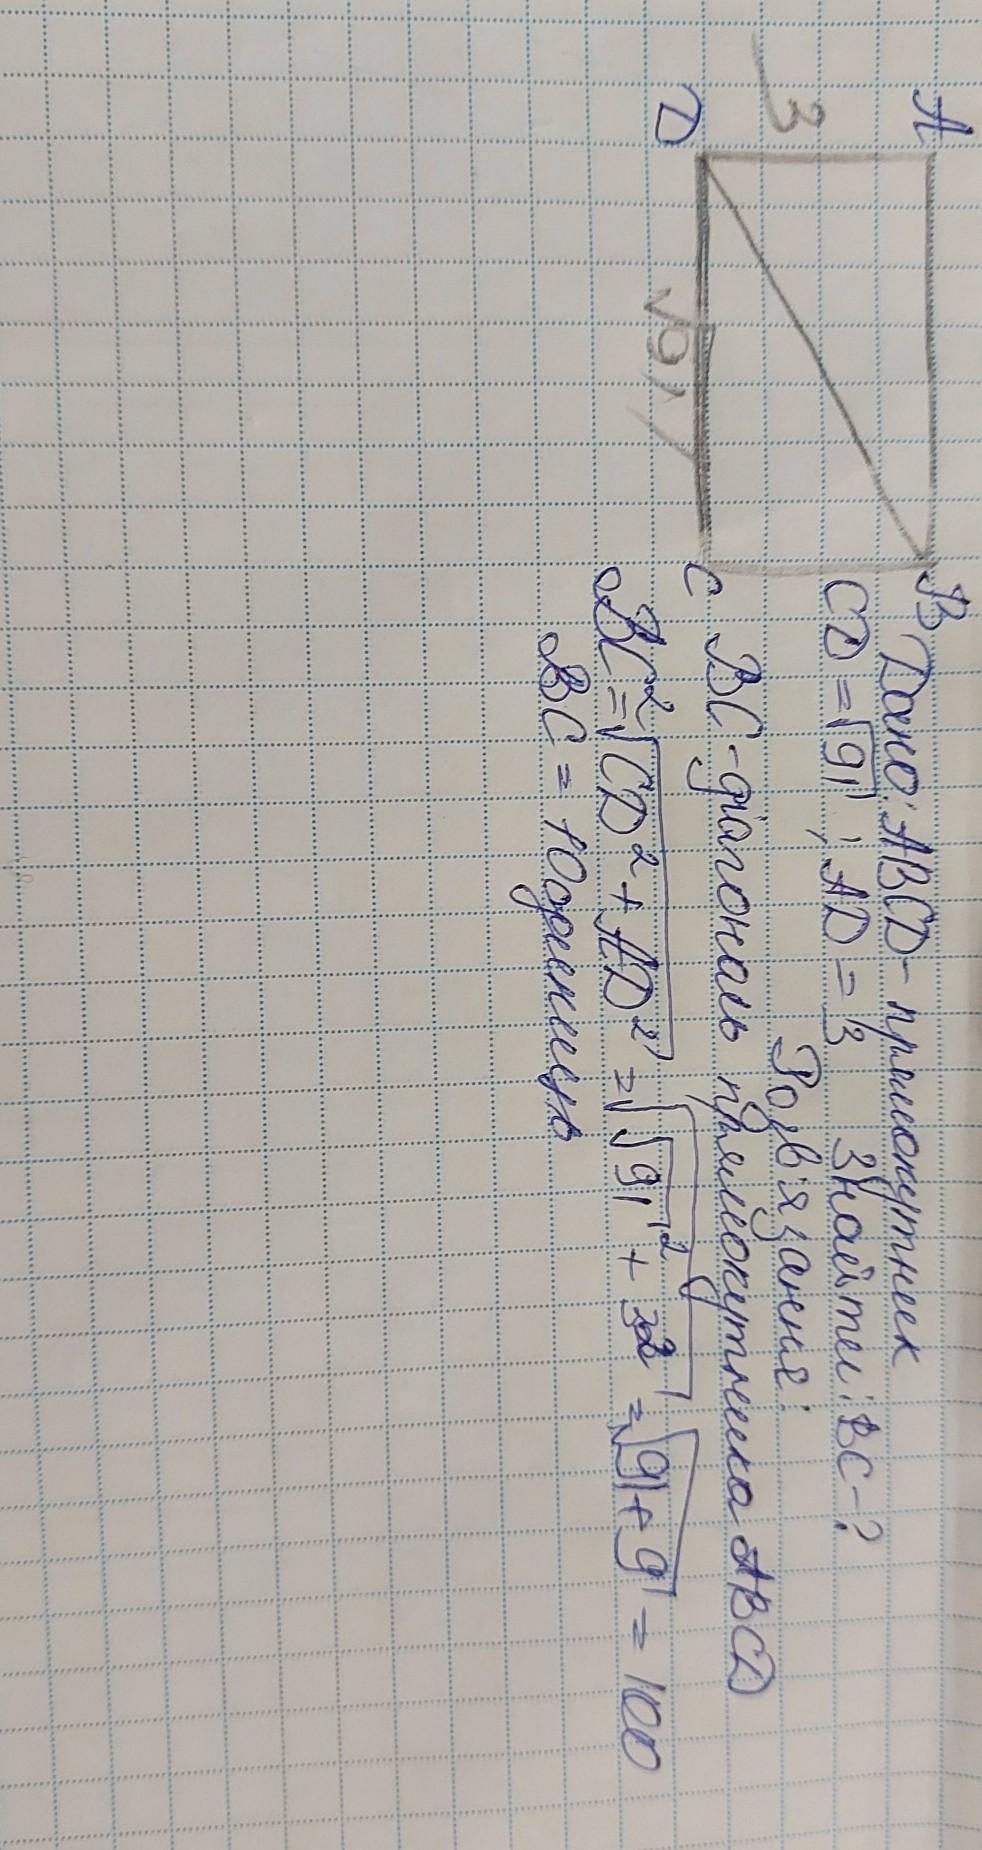 A
B
3
D
√91
C
Дано: ABCD - прямокутник
CD = √91 ; AD = 3 Знайти: BC - ?
Розв'язання:
BC - діагональ прямокутника ABCD
BC² = √CD² + AD² = √√91² + 3² = √91 + 9 = 100
BC = 10 одиниць